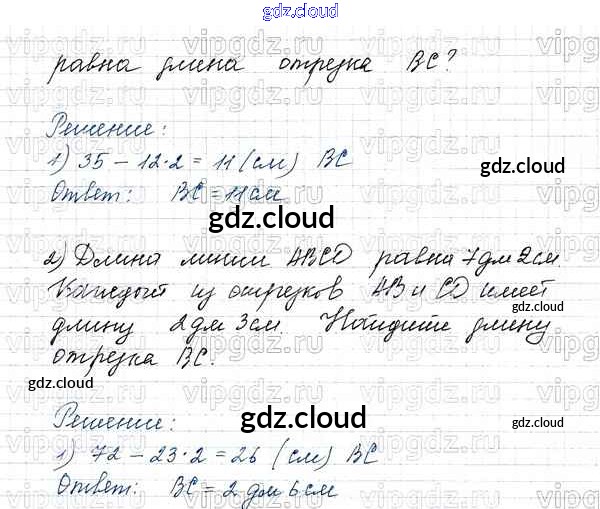 gdz.cloud
равна длина отрезка BC?
Решение:
1) 35 – 12·2 = 11 (см) BC
Ответ: BC = 11 см
gdz.cloud
gdz.cloud
2) Длина линии ABCD равна 7 дм 2 см
Каждый из отрезков AB и CD имеет
gdz.cloud
длину 2 дм 3 см. Найдите длину
отрезка BC.
gdz.cloud
gdz.cloud
Решение:
gdz.cloud
1) 72 – 23·2 = 26 (см) BC
Ответ: BC = 2 дм 6 см
gdz.cloud